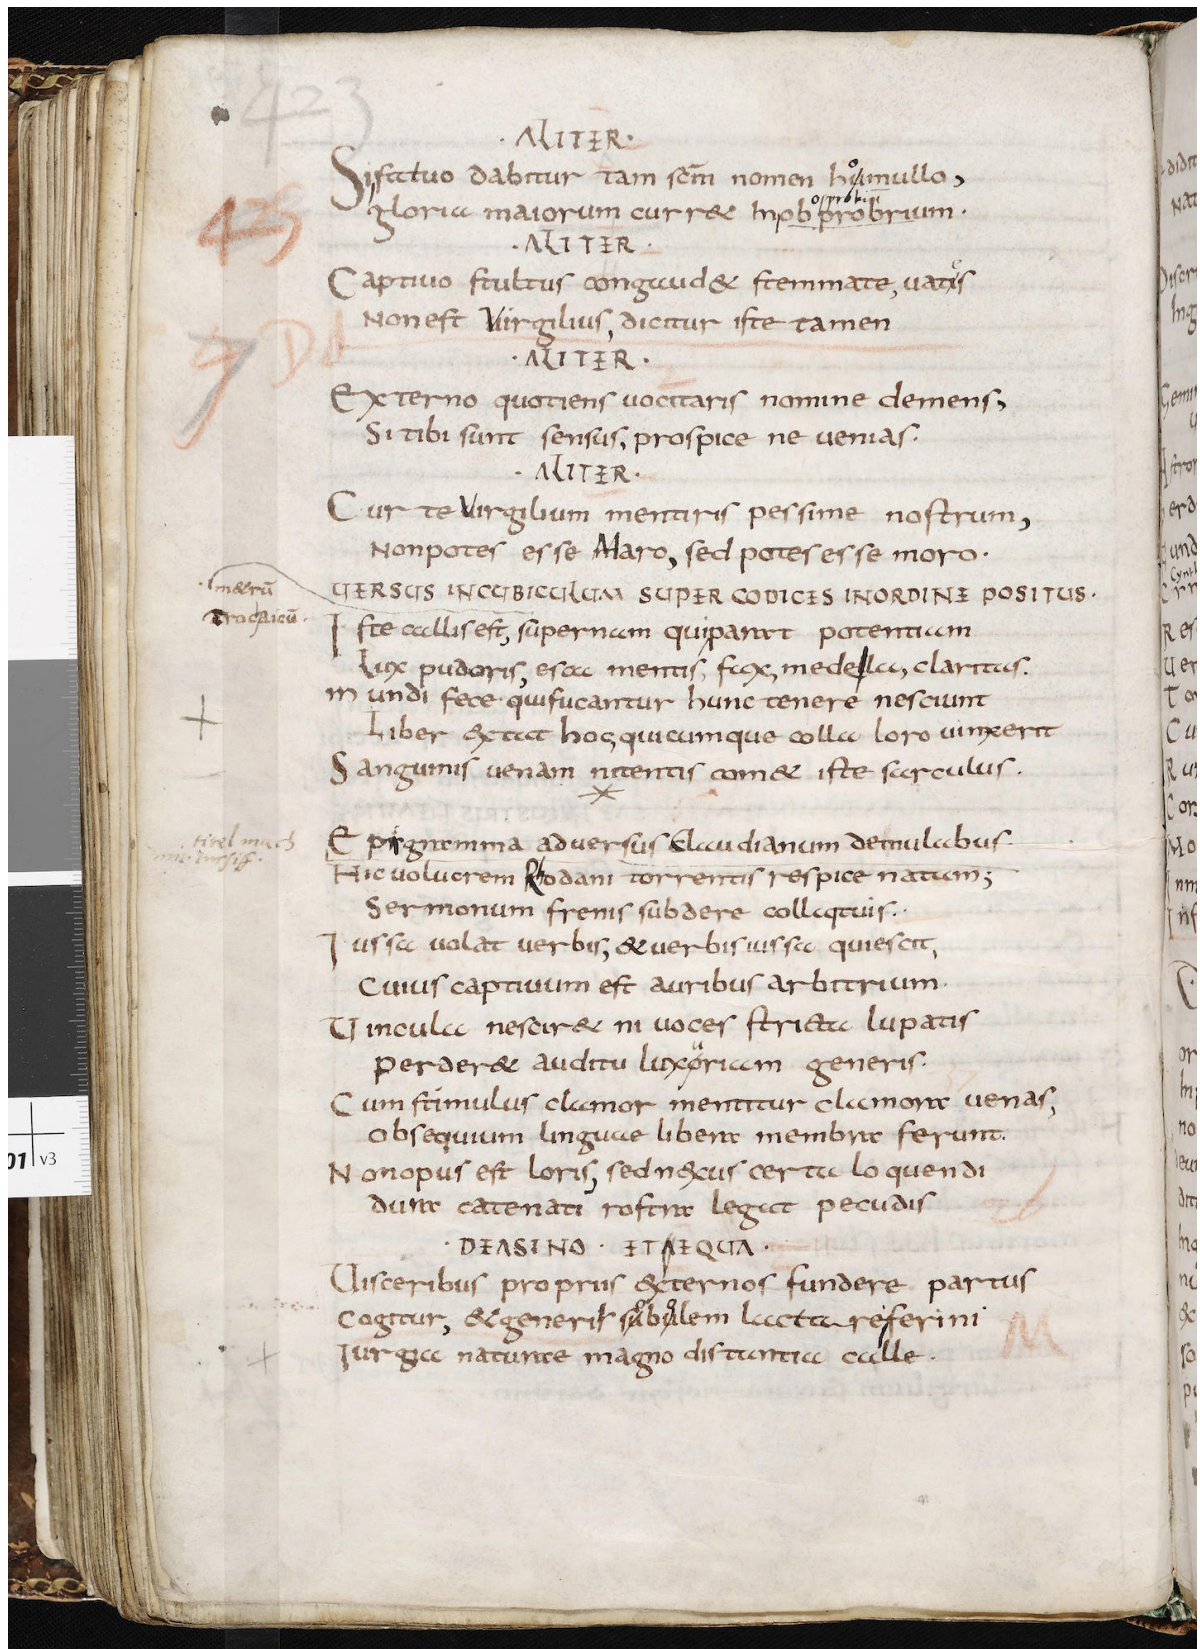 423
· ALITER ·
Sifatuo dabitur tam scm̄ nomen homullo,
425
gloria maiorum curr& Inobprobrium ·
opprobriū
· ALITER ·
Captiuo stultus congaud& stemmate, uatis
Non est Virgilius, dicitur iste tamen
· ALITER ·
Externo quotiens uocitaris nomine demens,
Si tibi sunt sensus, prospice ne uenias ·
· ALITER ·
Cur te Virgilium mentiris pessime nostrum,
Non potes esse Maro, sed potes esse moro ·
m&rū
Trochaicū ·
VERSUS IN CUBICULUM SUPER CODICES IN ORDINE POSITUS ·
Iste callis est, supernam qui parat potentiam
Lux pudoris, esca mentis, fax, medella, claritas.
mundi fece quifucantur hunc tenere nesciunt
Liber extat hoc, quicumque colla loro uinxerit
Sanguinis uenam nitentis com& iste sarculus ·
Epigramma aduersus Claudianum demulabus ·
Hic uolucrem Rhodani torrentis respice natum;
Sermonum frenis subdere colla quis ·
Iussa uolat uerbis, & uerbis iussa quiescit,
Cuius captiuum est auribus arbitrium ·
Vincula nescir& ni uoces stricta lupatis
perder& auditu luxoriam generis ·
Cum stimulus clamor mentitur clamorat uenas,
obsequium linguae libera membra ferunt.
Non opus est loris, sed nexus certa loquendi
dura catenati rostra legat pecudis
· DE ASINO · ET AEQUA ·
Visceribus propriis externos fundere partus
cogitur, & generis sobolem lacta referini
Iurgia naturae magno distantia calle ·
M